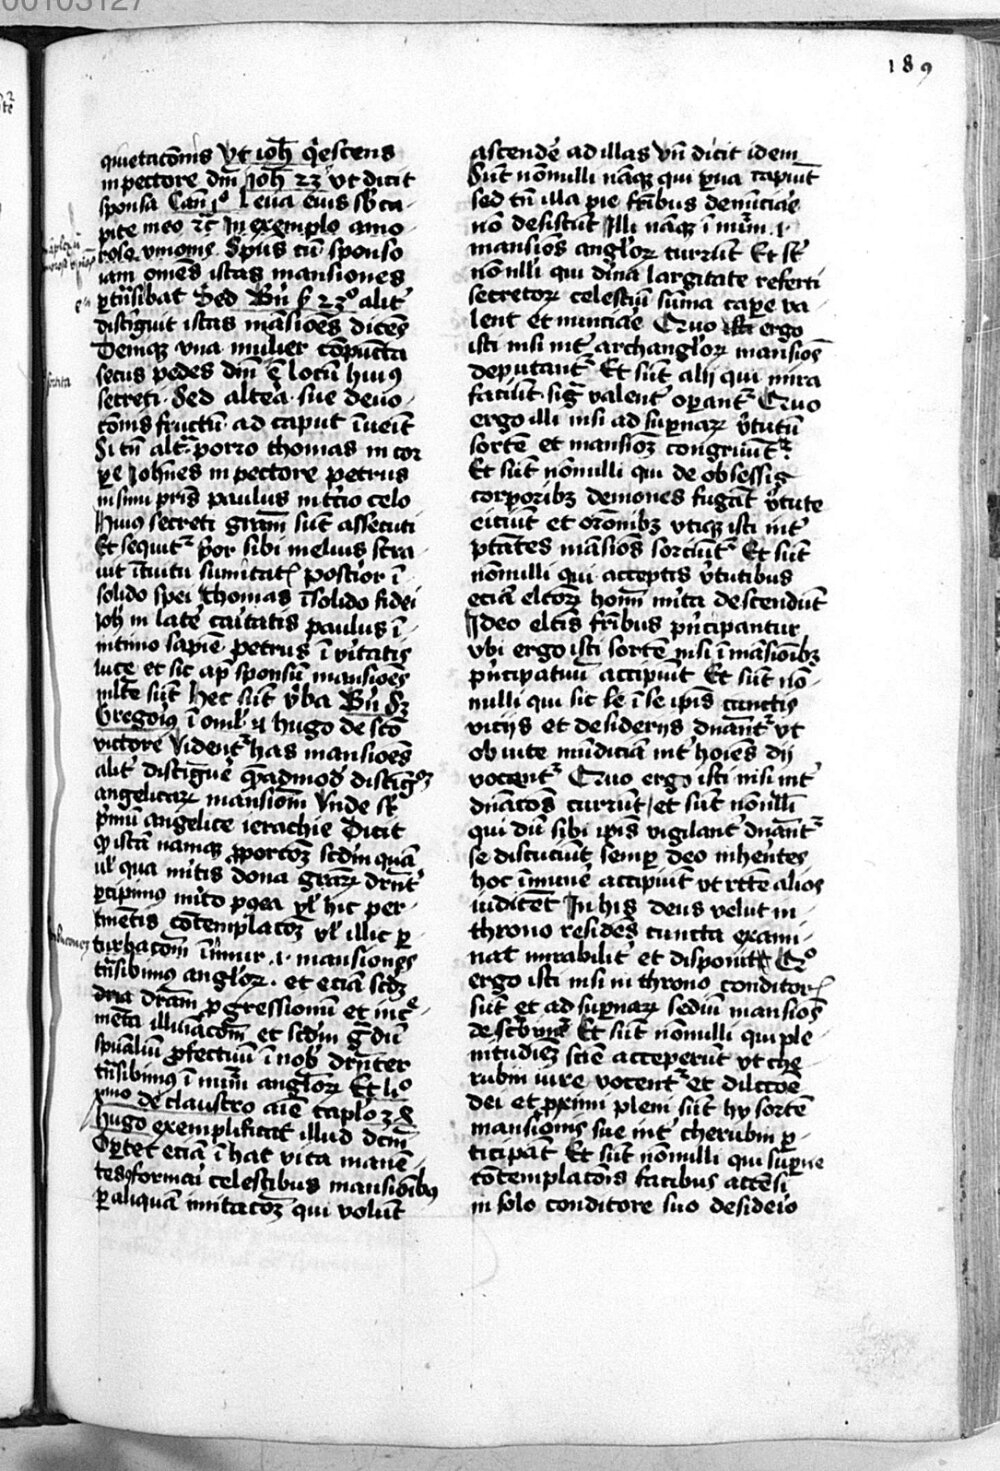 00103127
189
quietacōnis Vt ioh̄ q̇escens
in pectore dnī Joh̄ 23 vt dicit
sponsa Can̄ 1º Leua eius sb ca-
pite meo ⁊c̄ In exemplo amo-
rose vnionis Spūs cū sponso
iam om̄es istas mansiones
ꝑtn̄sibat Sed Bn̄ s̄ 23º alit̄
distīguit istas māsiōes dicēs
Demq̨ vna mulier cōpūcta
secus pedes dnī ē locū huiꝰ
secreti · Sed altēa · sue deuo-
cōnis fructū · ad caput īueīt
Si tn̄ alt̄a porro thomas in cor
ꝑe Joh̄nes in pectore petrus
in sinu pr̄is paulus in t̄cio celo
Huiꝰ secreti grām sūt assecuti
Et sequit᷑ p̄or sibi melius stra-
uit ītuitu sūmitat̄ postior ī
solido spei thomas ī solido fidei
Joh̄ in late caītatis paulus ī-
intimo sapiē petrus ī v̄itatis
luce et sic ap̄ sponsū mansioēs
ml̄te sūt hec sūt v̄ba Bn̄ Sʒ
Gregoīꝰ ī omīl et hugo de scō
victore vident᷑ has mansioēs
alit̄ distīgue q̄admodū distīgꝰ
angelicaꝝ mansionū Vnde sr̄
p̄mū angelice ierachie Dicit
ꝙ istā namq̨ ꝓporcōʒ scd̄m quā
vl̄ qua mītis dona grāꝝ dr̄nt̄
ꝑcipimꝰ mīto postea vl̄ hic per-
tinētis cōtemplacōʒ vl̄ illic ꝑ
turbacōm īm̄mur ·i· mansiones
tn̄sibimꝰ angloꝝ · et eciā scd̄ʒ
dria drām ꝓgressionū et īcre-
mēta illūīacōm et scd̄m g̊dū
spūaliū ꝓfectuū ī nob̄ dr̄nter
tn̄sibimꝰ ī mūm angloꝝ Et liº
p̄mo de claustro aīe caplo 3 8
hugo exemplificat illud dc̄m
Oꝑtet eciā ī hac vita manē-
tes ꝯformari celestibus mansioībꝰ
ꝑ aliquā imitacōʒ qui volūt
ascende ad illas Vn̄ dicit idem
Sūt nōnulli nāq̨ qui ꝑua capiūt
sed tn̄ illa pie fr̄ibus denūciāe
nō desistūt Illi nāq̨ ī nūm ·i·
mansiōs angloꝝ currūt Et sūt
nōnulli qui dīna largitate referti
secretoꝝ celestiū sūma cape va-
lent et nunciāe Quo isti ergo
isti nisi int̄ archangloꝝ mansiōes
deputant᷑ Et sūt alij qui mira
faciūt · sigᷓ valent̄ oꝑant᷑ Quo
ergo illi nisi ad suꝑnaꝝ v̄tutū
sortē et mansiōʒ congruūt᷑
Et sūt nōnulli qui de obsessis
corporibʒ demones fugāt v̄tute
eiciūt et orōnibʒ vtiq̨ isti int̄
p̄tātes māsiōs sorciūt᷑ Et sūt
nōnulli qui acceptis v̄tutibus
eciā elc̄oꝝ hoīm mīta descendūt
Ideo elc̄tis fr̄ibus p̄ncipantur
vbi ergo isti sortē nisi ī māsioībʒ
p̄ncipatuū accipiūt Et sūt nō-
nulli qui sic se ī se ip̄is cunctis
vicijs et desiderijs dnānt᷑ vt
ob iure mūdiciā int̄ hoīes dij
vocant᷑ Quo ergo isti nisi int̄
dnācōs currūt / et sūt nōnulli
qui dū sibi ip̄is vigilant̄ dnānt᷑
se discuciūt semꝑ deo inhēntes
hoc ī mune accipiūt vt rc̄te alios
iudicēt In his deus velut in-
throno residēs cuncta exami-
nat mirabilit̄ et disponit Quo
ergo isti nisi in throno conditoꝝ
sūt et ad suꝑnaꝝ sediū mansiōs
describūt᷑ Et sūt nōnulli qui ple-
nitudiēʒ scīe acceperūt vt che
rubin iure vocent᷑ et dilcc̄oe
dei et pximi pleni sūt hij sortē
mansiōnis sue int̄ cherubin ꝑ-
ticipāt Et sūt nōnulli qui suꝑne
cōtemplacōis facibus accēsi
in solo conditore suo desideīo